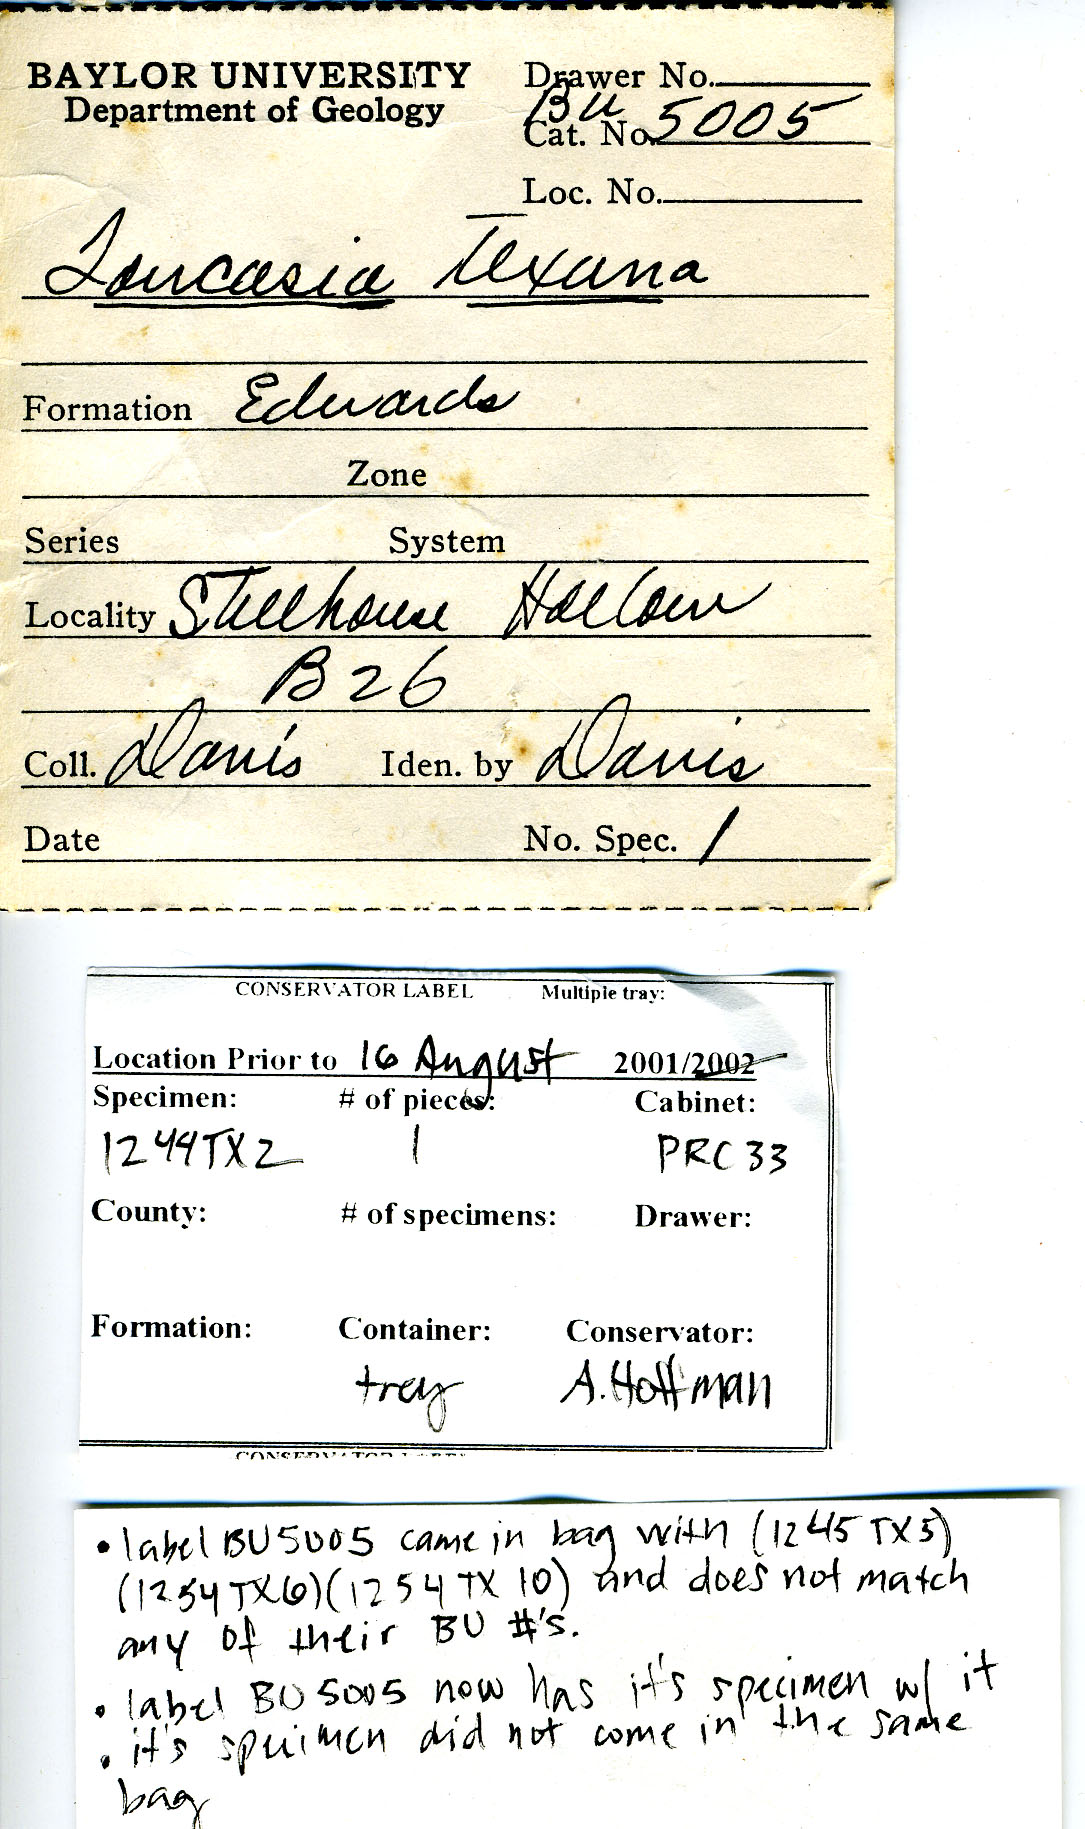 BAYLOR UNIVERSITY
Department of Geology
Drawer No.
BU
Cat. No. 5005
Loc. No.
Toucasia Texana
Formation Edwards
Zone
Series System
Locality Stillhouse Hollow
B26
Coll. Davis Iden. by Davis
Date No. Spec. 1
CONSERVATOR LABEL Multiple tray:
Location Prior to 16 August 2001/2002
Specimen: # of pieces: Cabinet:
1244TX2 1 PRC 33
County: # of specimens: Drawer:
Formation: Container: Conservator:
trey A. Hoffman
CONSERVATOR LABEL
• label BU5005 came in bag with (1245 TX5)
(1254TX6)(1254 TX 10) and does not match
any of their BU #'s.
• label BU 5005 now has it's specimen w/ it
• it's specimen did not come in the same
bag